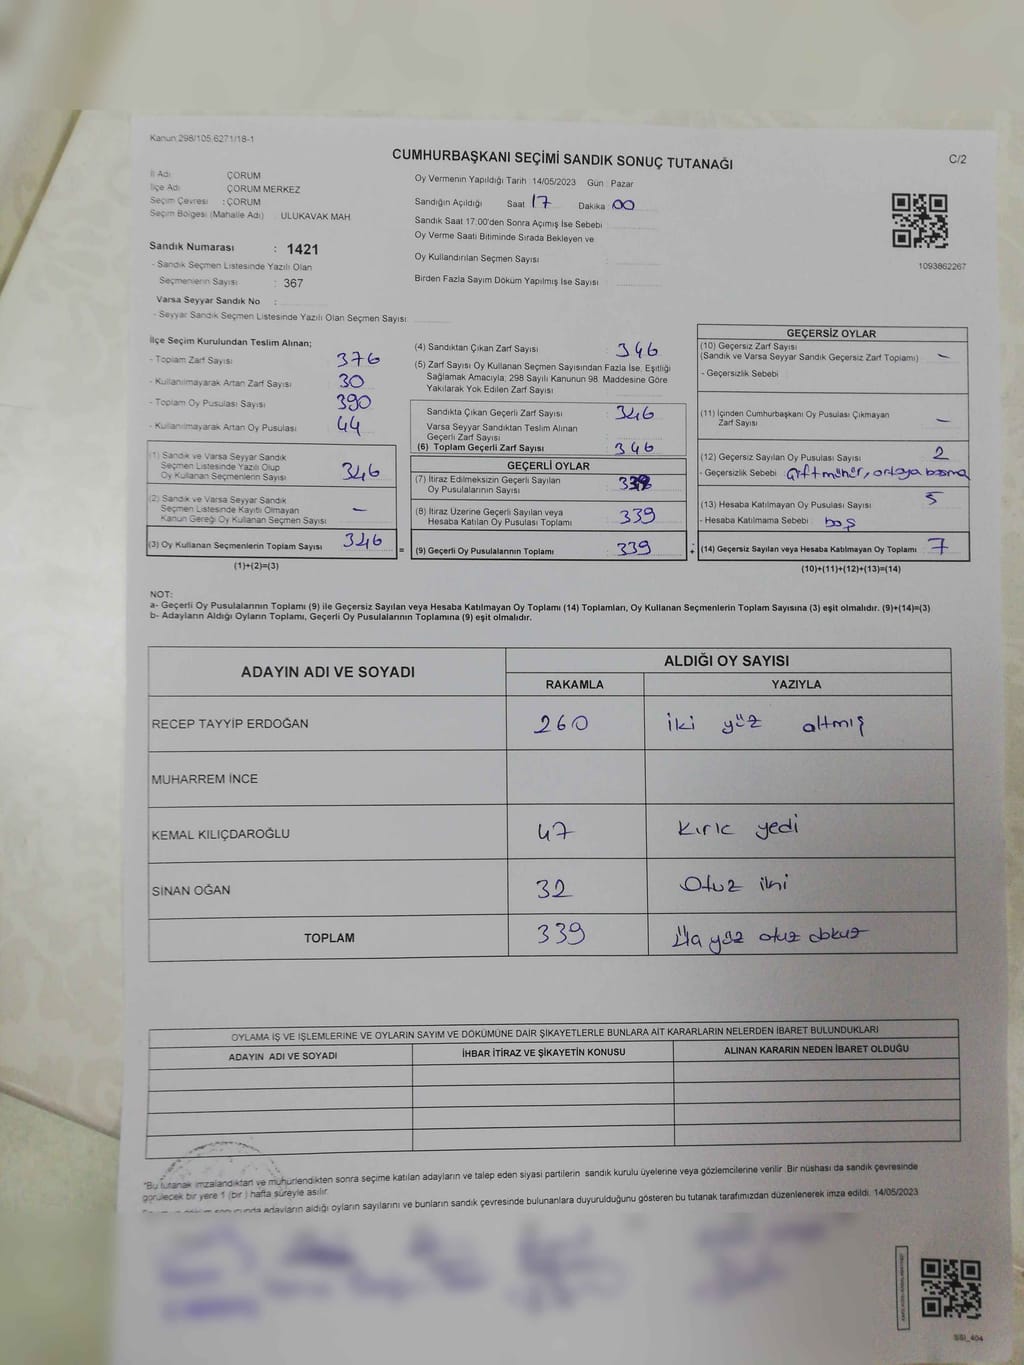 Kanun 298/105 6271/18-1
CUMHURBAŞKANI SEÇİMİ SANDIK SONUÇ TUTANAĞI
C/2
İl Adı ÇORUM
İlçe Adı ÇORUM MERKEZ
Seçim Çevresi : ÇORUM
Seçim Bölgesi (Mahalle Adı) : ULUKAVAK MAH
Sandık Numarası : 1421
- Sandık Seçmen Listesinde Yazılı Olan
Seçmenlerin Sayısı : 367
Varsa Seyyar Sandık No :
- Seyyar Sandık Seçmen Listesinde Yazılı Olan Seçmen Sayısı
Oy Vermenin Yapıldığı Tarih 14/05/2023 Gün Pazar
Sandığın Açıldığı Saat 17 Dakika 00
Sandık Saat 17:00'den Sonra Açımış İse Sebebi
Oy Verme Saati Bitiminde Sırada Bekleyen ve
Oy Kullandırılan Seçmen Sayısı :
Birden Fazla Sayım Döküm Yapılmış İse Sayısı
1093862267
İlçe Seçim Kurulundan Teslim Alınan;
- Toplam Zarf Sayısı 376
- Kullanılmayarak Artan Zarf Sayısı 30
- Toplam Oy Pusulası Sayısı 390
- Kullanılmayarak Artan Oy Pusulası 44
(1) Sandık ve Varsa Seyyar Sandık
Seçmen Listesinde Yazılı Olup
Oy Kullanan Seçmenlerin Sayısı 346
(2) Sandık ve Varsa Seyyar Sandık
Seçmen Listesinde Kayıtlı Olmayan
Kanun Gereği Oy Kullanan Seçmen Sayısı –
(3) Oy Kullanan Seçmenlerin Toplam Sayısı 346
(1)+(2)=(3)
(4) Sandıktan Çıkan Zarf Sayısı : 346
(5) Zarf Sayısı Oy Kullanan Seçmen Sayısından Fazla İse, Eşitliği
Sağlamak Amacıyla, 298 Sayılı Kanunun 98. Maddesine Göre
Yakılarak Yok Edilen Zarf Sayısı
Sandıkta Çıkan Geçerli Zarf Sayısı : 346
Varsa Seyyar Sandıktan Teslim Alınan
Geçerli Zarf Sayısı :
(6) Toplam Geçerli Zarf Sayısı : 346
GEÇERLİ OYLAR
(7) İtiraz Edilmeksizin Geçerli Sayılan
Oy Pusulalarının Sayısı : 339
(8) İtiraz Üzerine Geçerli Sayılan veya
Hesaba Katılan Oy Pusulası Toplamı : 339
= (9) Geçerli Oy Pusulalarının Toplamı : 339 +
GEÇERSİZ OYLAR
(10) Geçersiz Zarf Sayısı
(Sandık ve Varsa Seyyar Sandık Geçersiz Zarf Toplamı) –
- Geçersizlik Sebebi
(11) İçinden Cumhurbaşkanı Oy Pusulası Çıkmayan
Zarf Sayısı –
(12) Geçersiz Sayılan Oy Pusulası Sayısı 2
- Geçersizlik Sebebi Çift mühür, ortaya basma
(13) Hesaba Katılmayan Oy Pusulası Sayısı 5
- Hesaba Katılmama Sebebi boş
(14) Geçersiz Sayılan veya Hesaba Katılmayan Oy Toplamı 7
(10)+(11)+(12)+(13)=(14)
NOT:
a- Geçerli Oy Pusulalarının Toplamı (9) ile Geçersiz Sayılan veya Hesaba Katılmayan Oy Toplamı (14) Toplamları, Oy Kullanan Seçmenlerin Toplam Sayısına (3) eşit olmalıdır. (9)+(14)=(3)
b- Adayların Aldığı Oyların Toplamı, Geçerli Oy Pusulalarının Toplamına (9) eşit olmalıdır.
ADAYIN ADI VE SOYADI
ALDIĞI OY SAYISI
RAKAMLA YAZIYLA
RECEP TAYYİP ERDOĞAN 260 iki yüz altmış
MUHARREM İNCE
KEMAL KILIÇDAROĞLU 47 Kırk yedi
SİNAN OĞAN 32 Otuz iki
TOPLAM 339 yüz otuz dokuz
OYLAMA İŞ VE İŞLEMLERİNE VE OYLARIN SAYIM VE DÖKÜMÜNE DAİR ŞİKAYETLERLE BUNLARA AİT KARARLARIN NELERDEN İBARET BULUNDUKLARI
ADAYIN ADI VE SOYADI İHBAR İTİRAZ VE ŞİKAYETİN KONUSU ALINAN KARARIN NEDEN İBARET OLDUĞU
"Bu tutanak imzalandıktan ve mühürlendikten sonra seçime katılan adayların ve talep eden siyasi partilerin sandık kurulu üyelerine veya gözlemcilerine verilir. Bir nüshası da sandık çevresinde
görülecek bir yere 1 (bir ) hafta süreyle asılır.
adayların aldığı oyların sayılarını ve bunların sandık çevresinde bulunanlara duyurulduğunu gösteren bu tutanak tarafımızdan düzenlenerek imza edildi. 14/05/2023
SSI_404